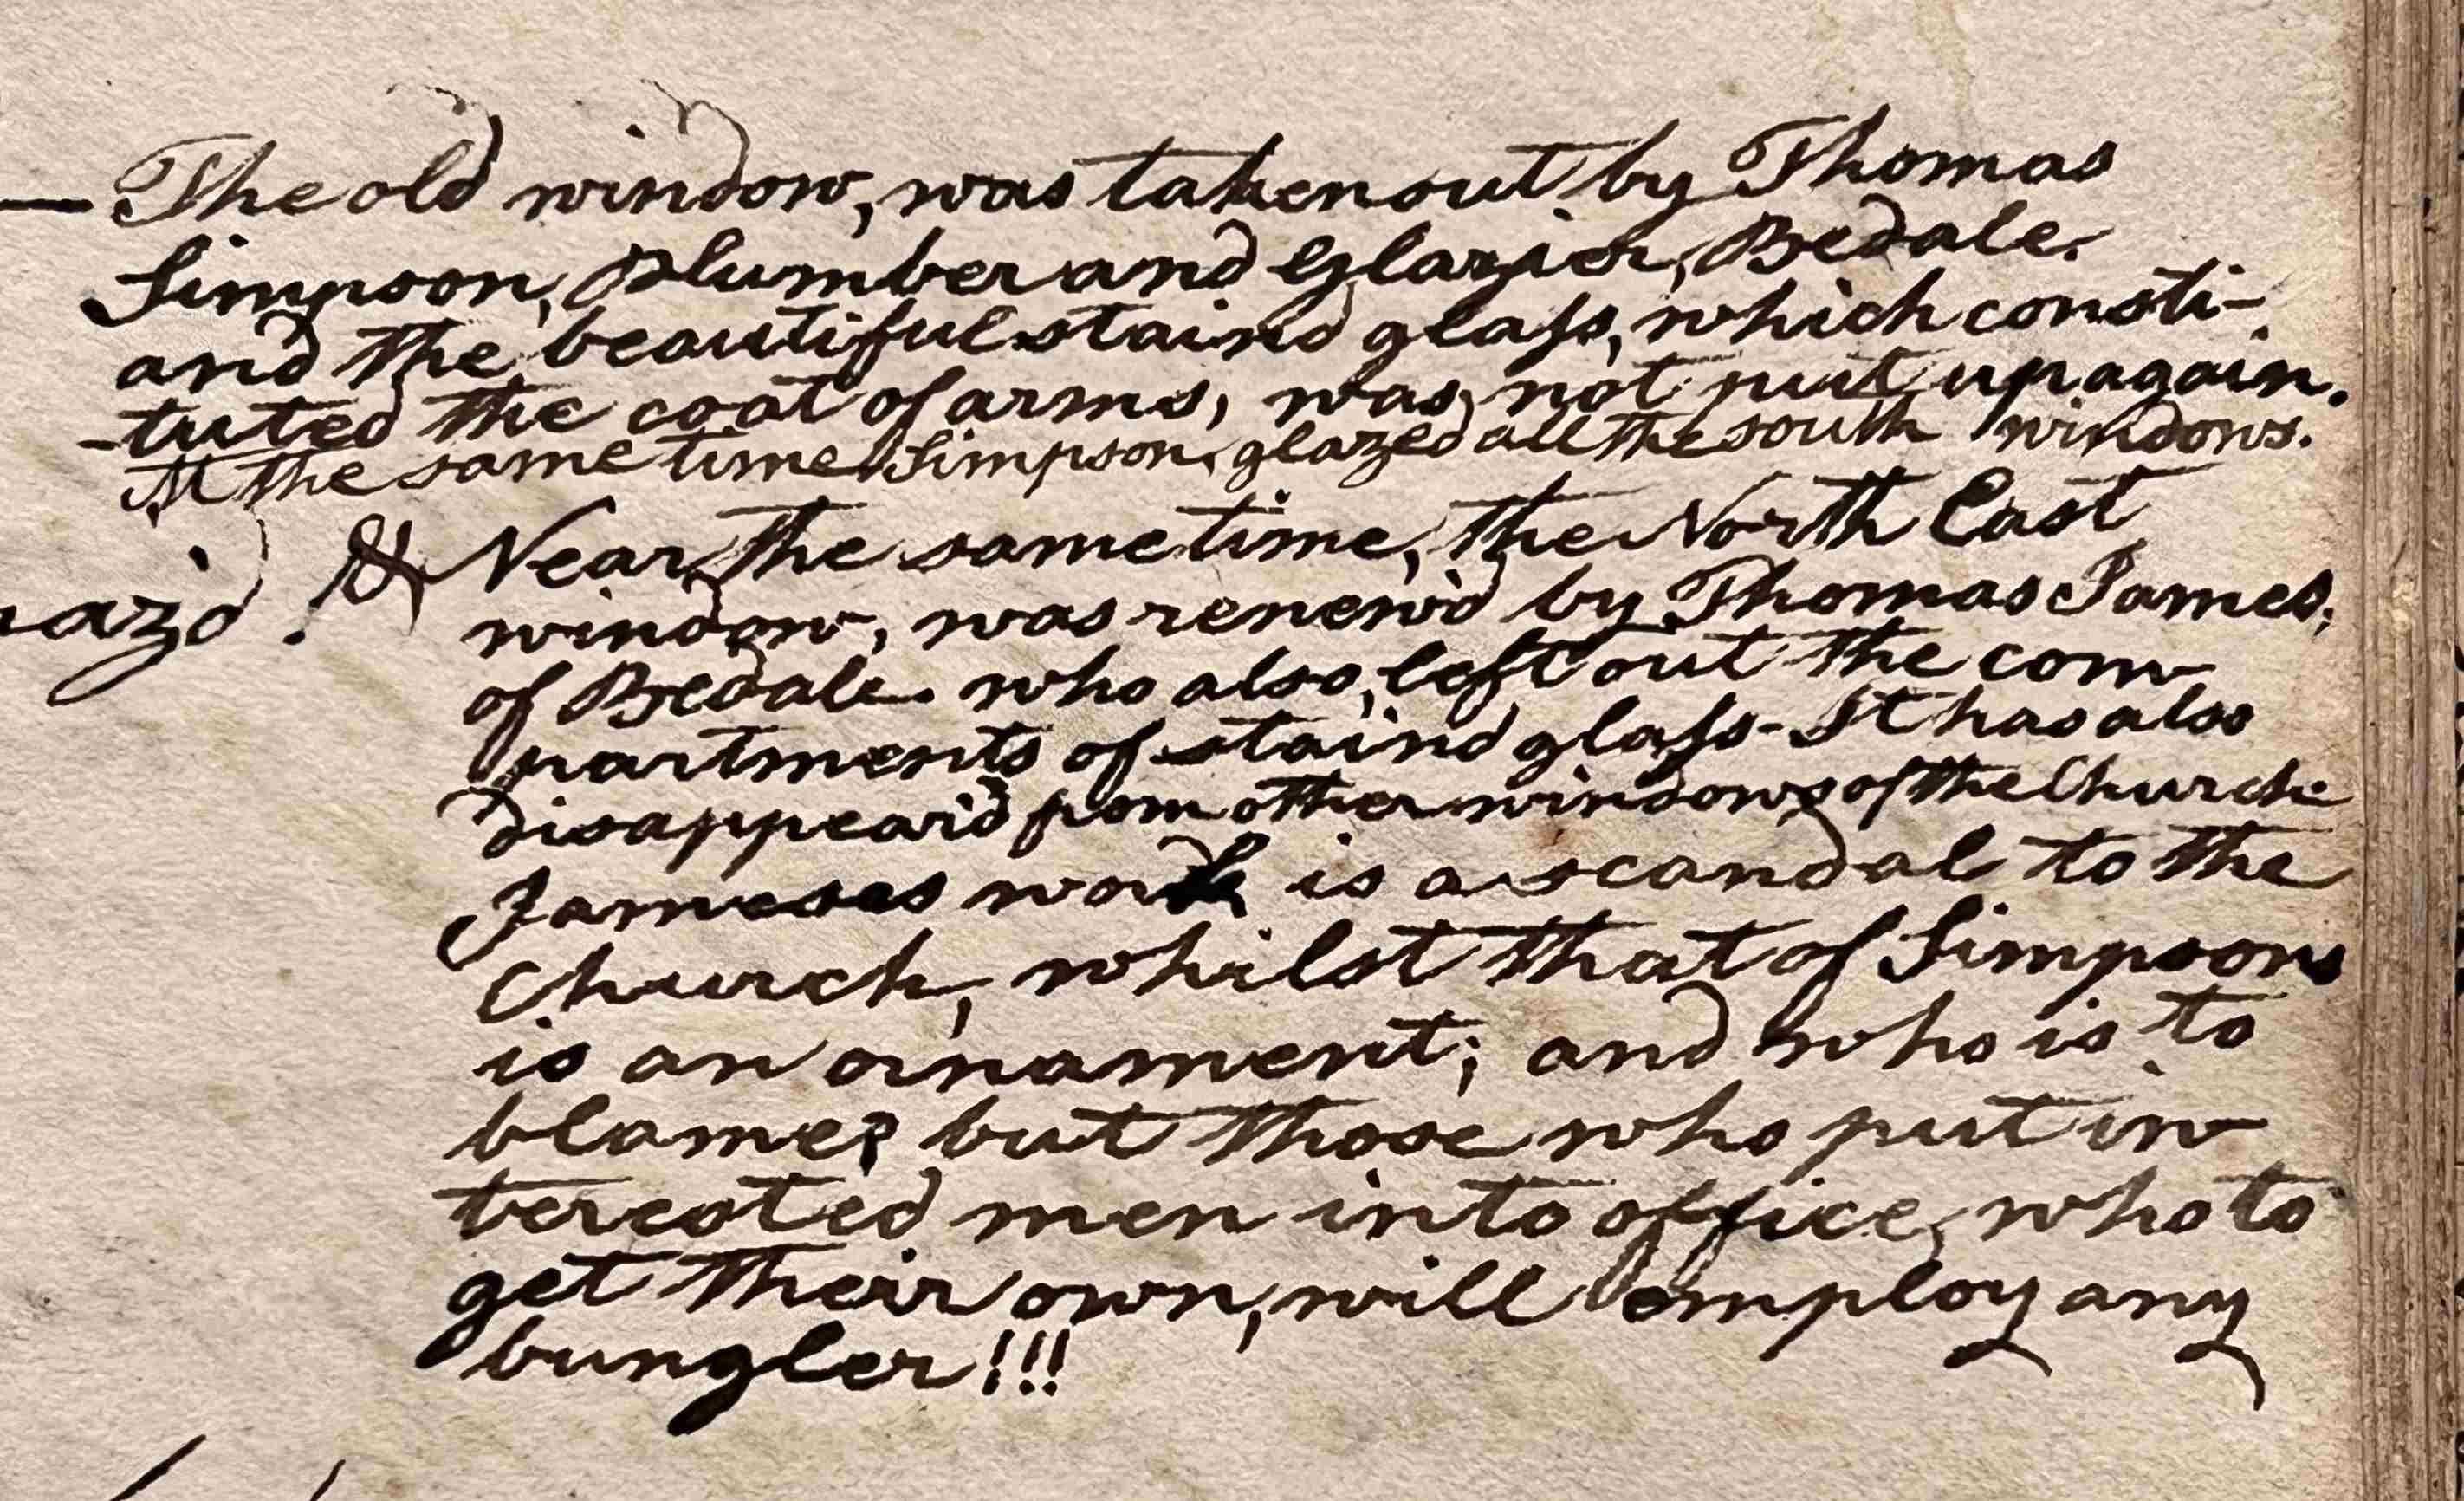 — The old window, was taken out by Thomas
Simpson, Plumber and Glazier, Bedale.
and the beautiful staind glass, which consti-
-tuted the coat of arms, was not put up again.
At the same time Simpson, glazed all the south windows.
& Near the same time, the North East
window, was renew'd by Thomas James,
of Bedale. who also, left out the com
partments of staind glass - It has also
disappear'd from other windows of the Church
Jameses work is a scandal to the
Church, whilst that of Simpsons
is an ornament; and who is to
blame? but those who put in
terested men into office, who to
get their own, will employ any
bungler!!!